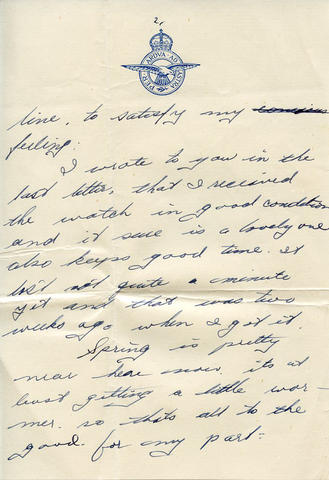 2,
PER · ARDVA · AD · ASTRA
line, to satisfy my
feeling.
I wrote to you in the
last letter, that I recieved
the watch in good condition
and it sure is a lovely one
also keeps good time. It
lost not quite a minute
yet and that was two
weeks ago when I got it.
Spring is pretty
near hear now, its at
least getting a little war-
mer. so thats all to the
good. for my part: